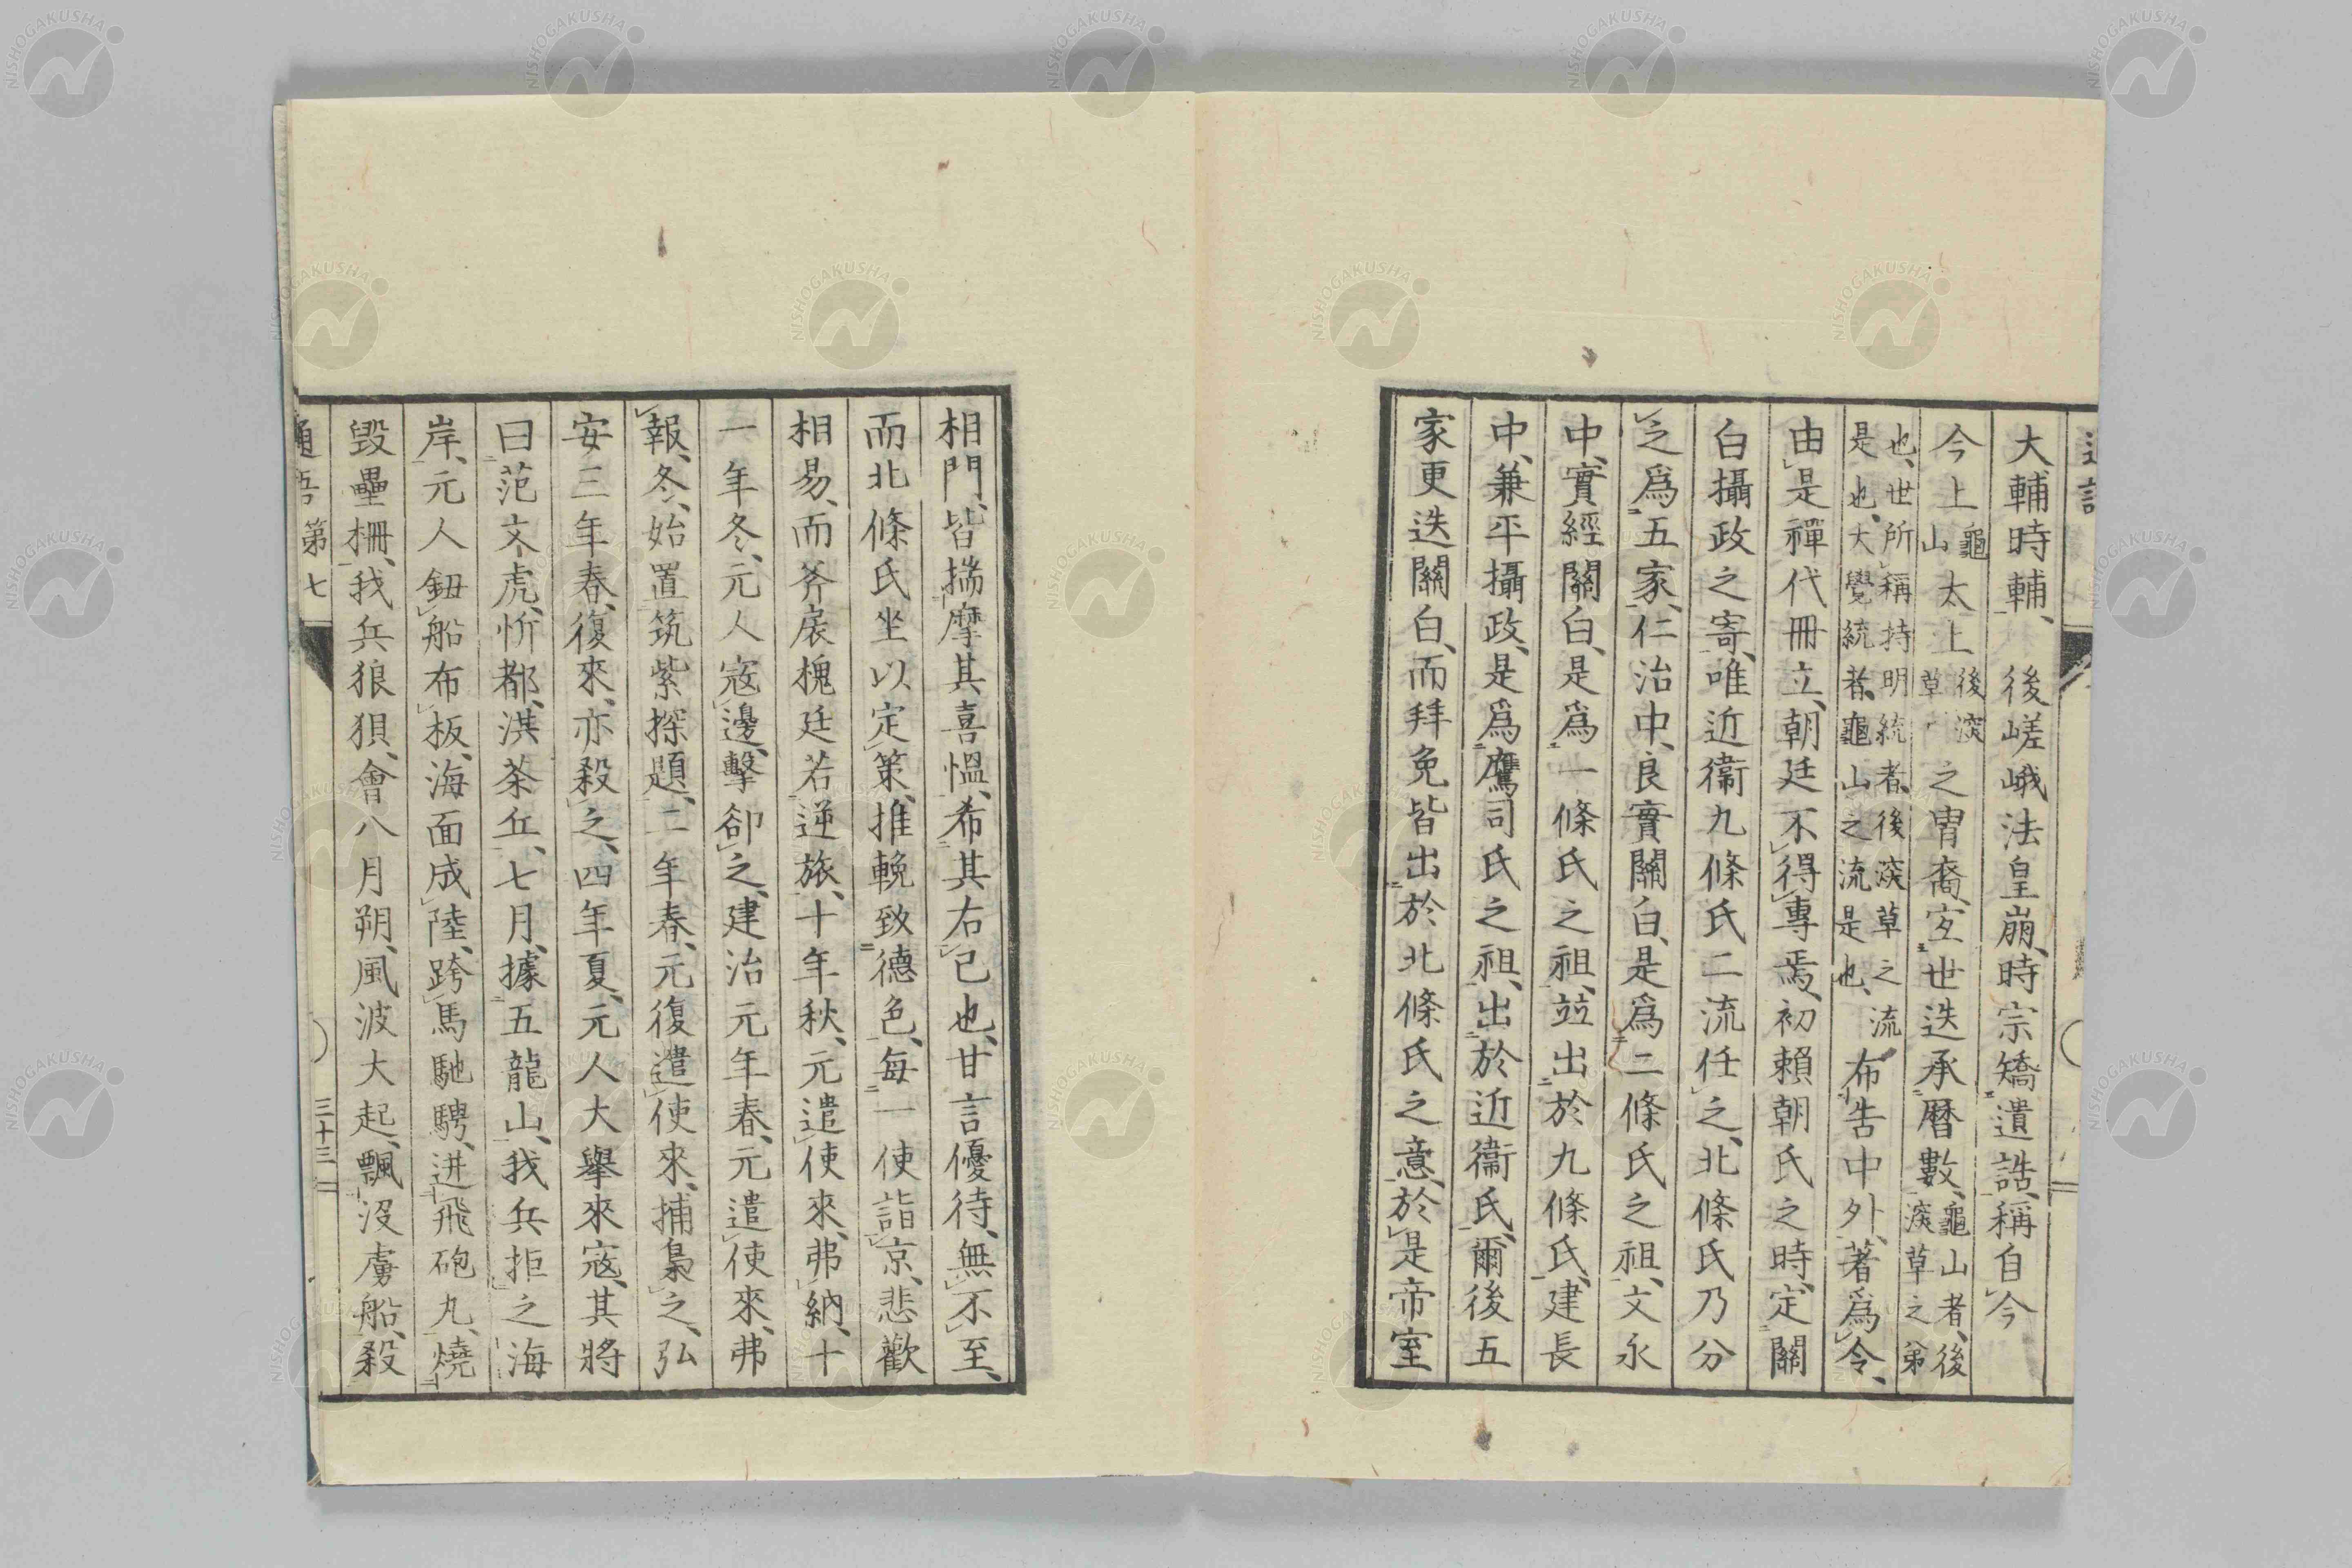 大輔時輔、後嵯峨法皇崩、時宗矯遺誥、稱自今
今上龜山太上後深草之冑裔、互世迭承曆數、龜山者、後深草之弟
也、世所稱持明統者、後深草之流是也、大覺統者、龜山之流是也、布告中外、著爲令、
由是禪代冊立、朝廷不得專焉、初賴朝氏之時、定關
白攝政之寄、唯近衞九條氏二流任之、北條氏乃分
之爲五家、仁治中、良實關白、是爲二條氏之祖、文永
中、實經關白、是爲一條氏之祖、竝出於九條氏、建長
中、兼平攝政、是爲鷹司氏之祖、出於近衞氏、爾後五
家更迭關白、而拜免皆出於北條氏之意、於是帝室
相門、皆揣摩其喜慍、希其右己也、甘言優待、無不至、
而北條氏坐以定策、推輓致德色、每一使詣京、悲歡
相易、而斧扆槐廷若逆旅、十年秋、元遣使來、弗納、十
一年冬、元人寇邊、擊卻之、建治元年春、元遣使來、弗
報、冬、始置筑紫探題、二年春、元復遣使來、捕梟之、弘
安三年春、復來、亦殺之、四年夏、元人大舉來寇、其將
曰范文虎、忻都、洪荼丘、七月、據五龍山、我兵拒之海
岸、元人鈕船布板、海面成陸、跨馬馳騁、迸飛砲丸、燒
毀壘柵、我兵狼狽、會八月朔、風波大起、飄沒虜船、殺
通語 第七
三十三
NISHOGAKUSHA